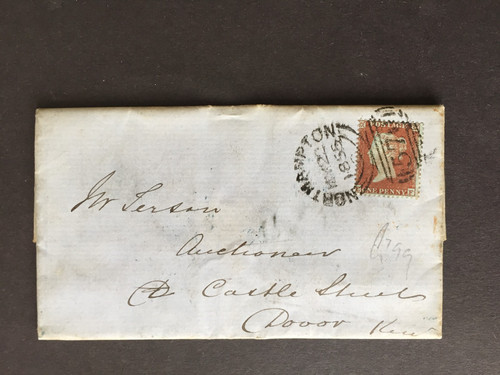 NORTHAMPTON
1855
POSTAGE
ONE PENNY
Mr Serson
Auctioneer
Castle Street
Dovor Kent